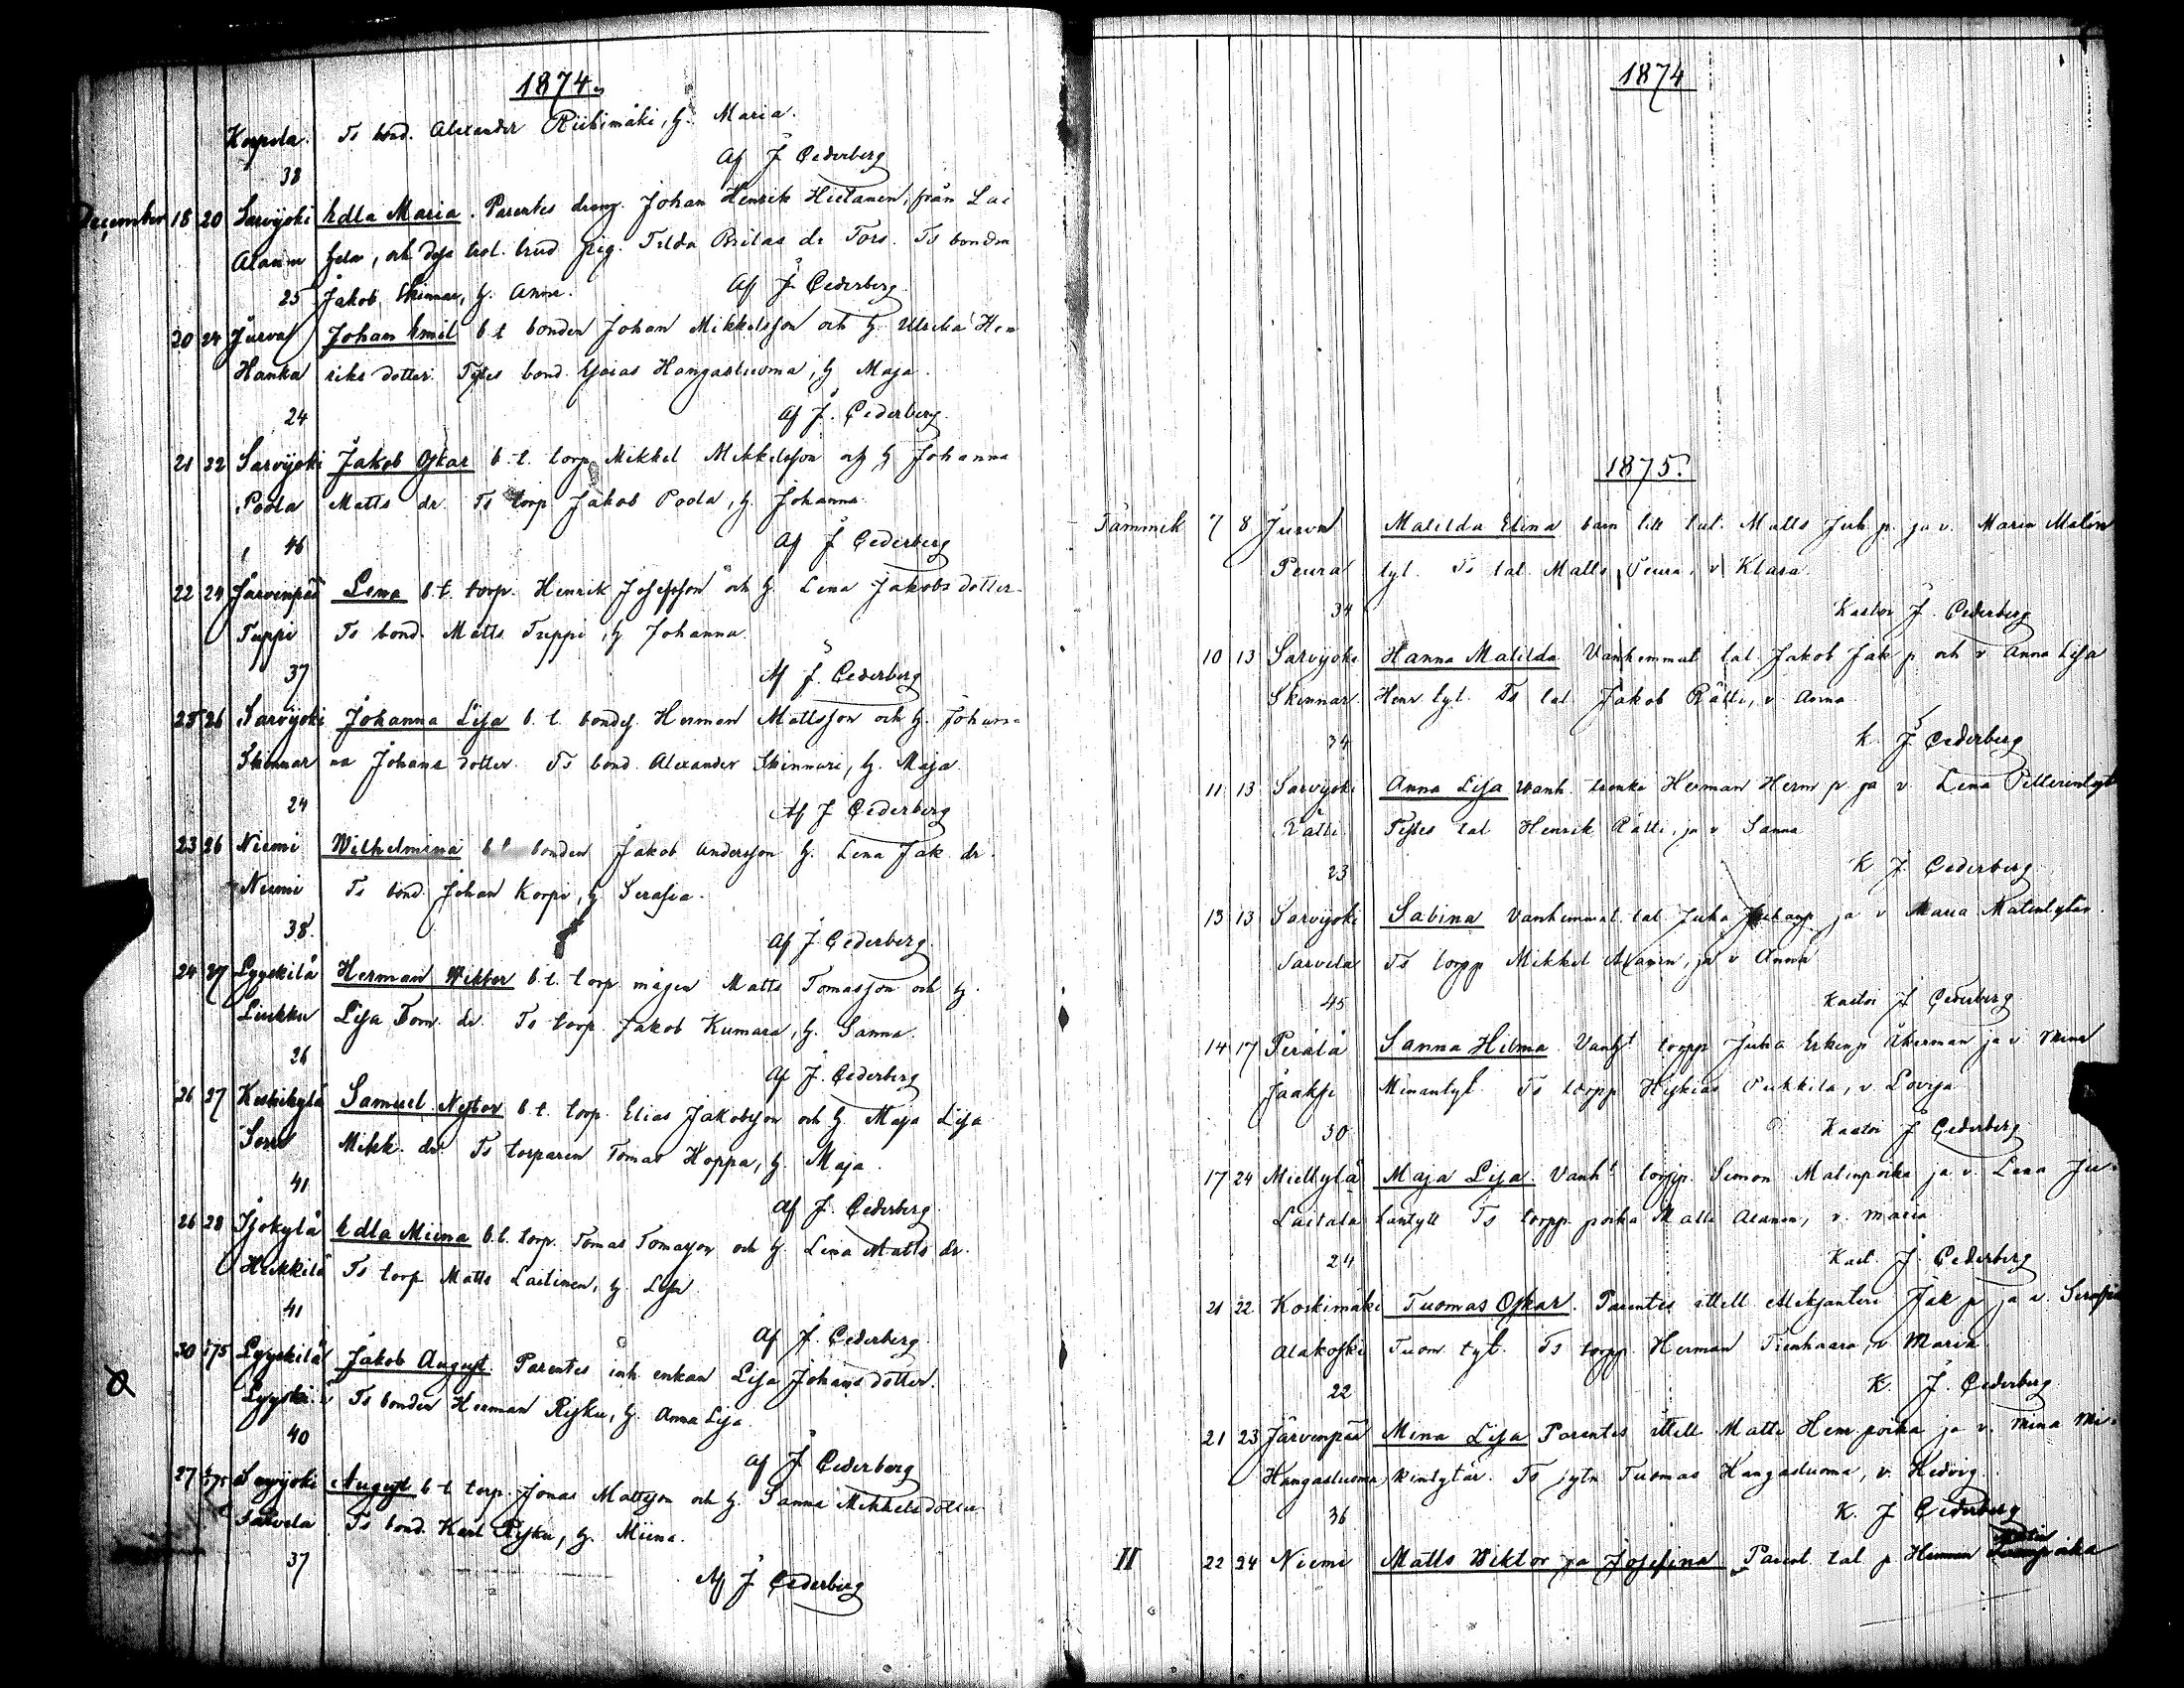 1874.
Ts bond. Alexander Riihimäki, h. Maria.
38
Af J Cederberg
December 18 20 Sarvijoki Edla Maria. Parentes dräng. Johan Henrik Hietanen, från Lai
Alanen hela, och dess trol. brud pig. Tilda Britas dr Tors. Ts bonden
25 Jakob Skinnar, h. Anna. Af J Cederberg
20 24 Jurva Johan Emil b. t. bonden Johan Mikkelsson och h. Ulrika Hen
Hanka riks dotter. Testes bond. Esaias Hangasluoma, h. Maja.
24 Af J. Cederberg
21 22 Sarvijoki Jakob Oskar b. t. torp Mikkel Mikkelsson och h Johanna
Poola Matts dr. Ts torp Jakob Poola, h. Johanna.
46 Af J Cederberg
22 24 Järvenpää Lena b. t. torp. Henrik Josefsson och h Lena Jakobs dotter.
Tuppi Ts bond. Matts Tuppi, h Johanna.
37 Af J. Cederberg
25 26 Sarvijoki Johanna Lisa b. t. bonden Herman Mattsson och h. Johan-
Skinnar na Johans dotter. Ts bond. Alexander Skinnari, h. Maja.
24 Af J Cederberg
23 26 Niemi Wilhelmina b t bonden Jakob Andersson h. Lena Jak dr.
Niemi Ts bond. Johan Korpi, h Serafia.
38. Af J Cederberg
24 27 Lyyskilä Herman Wiktor b. t. torp mågen Matts Tomasson och h.
Liukku Lisa Tom. dr. Ts torp. Jakob Kumara, h. Sanna.
26 Af J. Cederberg
26 27 Keskikylä Samuel Nestor b. t. torp. Elias Jakobsson och h Maja Lisa
Mikk. dr. Ts torparen Tomas Hoppa, h. Maja.
41 Af J. Cederberg
26 28 Isokylä Edla Miina b. t. torp. Tomas Tomasson och h. Lisa Matts dr.
Heikkilä Ts torp Matts Laitinen, h Lisa
41 Af J. Cederberg
30 Lyyskilä Jakob August. Parentes inh. enkan Lisa Johans dotter.
Lyyski Ts bonden Herman Risku, h. Anna Lisa.
40 Af J Cederberg
27 Sarvijoki August b t torp. Jonas Mattsson och h. Sanna Mikkels dotter
Sarvela Ts bond. Karl Risku, h. Miina.
37 Af J Cederberg
1874
1875.
Tammik 7 8 Jurva Matilda Elina barn till tal. Matts Juh p. ja v. Maria Matin
Peura tyt. Ts tal. Matts Peura, v Klara
34 Kastoi J. Cederberg
10 13 Sarvijoki Hanna Matilda Vanhemmat tal. Jakob Jak p och v Anna Lisa
Skinnar Henr tyt. Ts tal. Jakob Rätti, v Anna
34 K. J Cederberg
11 13 Sarvijoki Anna Lisa Vanh. renki Herman Herm p ja v Lena Petterintyt
Rätti Testes tal Henrik Rätti, ja v Sanna
23 K J. Cederberg
13 13 Sarvijoki Sabina Vanhemmat tal. Juha Juhanp ja v Maria Matintytär.
Sarvela Ts torpp Mikkel Alanen, ja v Anna
45 Kastoi J. Cederberg
14 17 Perälä Sanna Hilma Vanht torpp Juha Erkinp Åkerman ja v Mina
Jaakse Minantyt Ts torpp Heskias Pukkila, v. Lovisa
30 Kastoi J Cederberg
17 24 Mietylä Maja Lisa. Vanht torpp. Simon Matinpoika ja v. Lena Ju-
Laitala hantytt Ts torpp. poika Matti Alanen, v. Maria
24 Kast. J. Cederberg
21 22 Koskimäki Tuomas Oskar. Parentes ittell Aleksanteri Jak p ja v. Serafia
Alakoski Tuom tyt. Ts torpp. Herman Tienhaara, v Maria
22 K. J. Cederberg
21 23 Järvenpää Mina Lisa Parentes ittell Matti Henr poika ja v. Mina Mi-
Hangasluoma kintytär. Ts Tuomas Hangasluoma, v. Hedvig.
36 K. J Cederberg
II 22 24 Niemi Matts Wiktor ja Josefina Parent. tal p poika